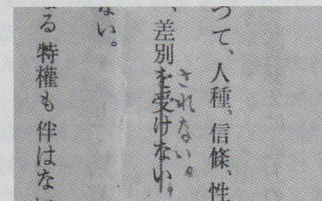 つて、人種、信條、性
、差別を受けない。
されない。
ない。
る特權も伴はない